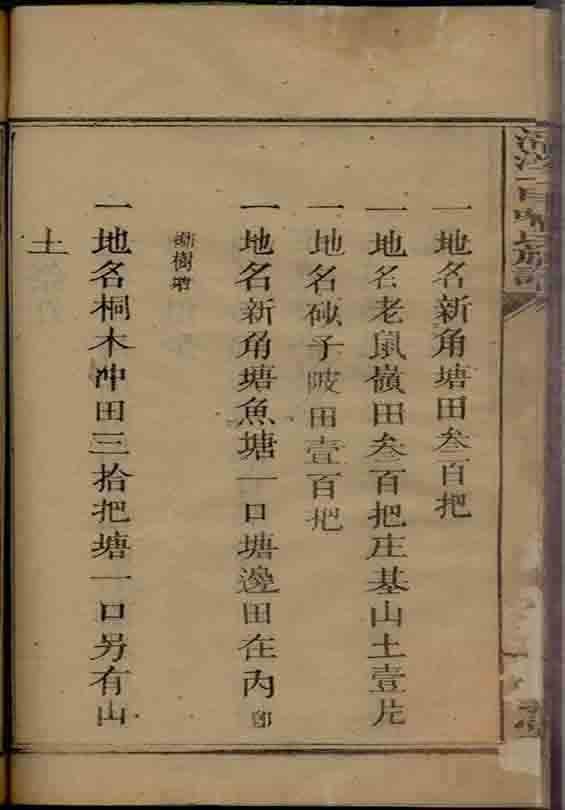 一地名新角塘田叁百把
一地名老鼠嶺田叁百把庄基山土壹片
一地名砂子陂田壹百把
一地名新角塘魚塘一口塘邊田在內
樹墩
一地名桐木冲田三拾把塘一口另有山
土